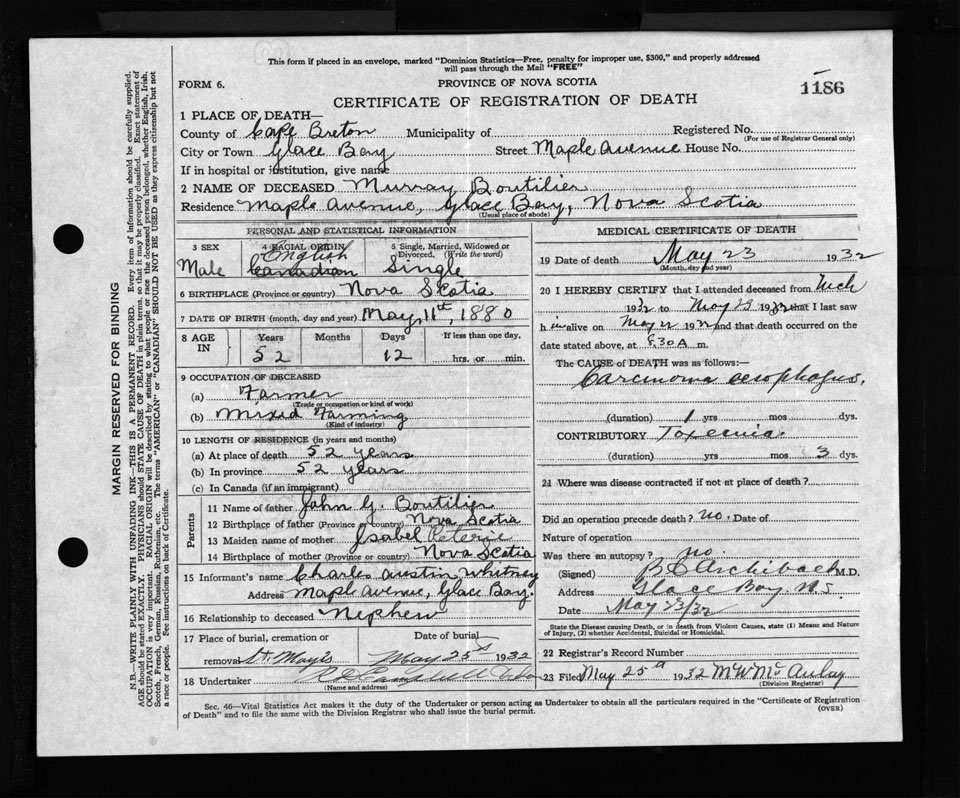 This form if placed in an envelope, marked "Dominion Statistics—Free, penalty for improper use, $300," and properly addressed
will pass through the Mail "FREE"
FORM 6.
PROVINCE OF NOVA SCOTIA
1186
CERTIFICATE OF REGISTRATION OF DEATH
1 PLACE OF DEATH—
County of Cape Breton Municipality of Registered No.
(For use of Registrar General only)
City or Town Glace Bay Street Maple Avenue House No.
If in hospital or institution, give name
2 NAME OF DECEASED Murray Boutilier
Residence Maple Avenue, Glace Bay, Nova Scotia
(Usual place of abode)
PERSONAL AND STATISTICAL INFORMATION
3 SEX 4 RACIAL ORIGIN 5 Single, Married, Widowed or Divorced, (Write the word)
Male English Canadian Single
6 BIRTHPLACE (Province or country) Nova Scotia
7 DATE OF BIRTH (month, day and year) May 11th, 1880
8 AGE IN Years Months Days If less than one day,
52 12 hrs. or min.
9 OCCUPATION OF DECEASED
(a) Farmer
(Trade or occupation or kind of work)
(b) Mixed Farming
(Kind of industry)
10 LENGTH OF RESIDENCE (in years and months)
(a) At place of death 52 years
(b) In province 52 years
(c) In Canada (if an immigrant)
Parents
11 Name of father John G. Boutilier
12 Birthplace of father (Province or country) Nova Scotia
13 Maiden name of mother Isabel
14 Birthplace of mother (Province or country) Nova Scotia
15 Informant's name Charles Austin Whitney
Address Maple Avenue, Glace Bay.
16 Relationship to deceased Nephew
17 Place of burial, cremation or Date of burial
removal May 25 1932
18 Undertaker
(Name and address)
MEDICAL CERTIFICATE OF DEATH
19 Date of death May 23 1932
(Month, day and year)
20 I HEREBY CERTIFY that I attended deceased from
1932 to May 23 1932 that I last saw
him alive on May 22 1932 and that death occurred on the
date stated above, at 8.30 A m.
The CAUSE of DEATH was as follows:—
Carcinoma oesophagus.
(duration) 1 yrs mos dys.
CONTRIBUTORY Toxemia.
(duration) yrs mos 3 dys.
21 Where was disease contracted if not at place of death?
Did an operation precede death? no. Date of
Nature of operation
Was there an autopsy? no.
(Signed) Archibald M.D.
Address Glace Bay N.S.
Date May 23/32
State the Disease causing Death, or in death from Violent Causes, state (1) Means and Nature
of Injury, (2) whether Accidental, Suicidal or Homicidal.
22 Registrar's Record Number
23 Filed May 25th 1932 M W McAulay
(Division Registrar)
Sec. 46—Vital Statistics Act makes it the duty of the Undertaker or person acting as Undertaker to obtain all the particulars required in the "Certificate of Registration
of Death" and to file the same with the Division Registrar who shall issue the burial permit.
(OVER)
MARGIN RESERVED FOR BINDING
N.B.—WRITE PLAINLY WITH UNFADING INK—THIS IS A PERMANENT RECORD. Every item of information should be carefully supplied.
AGE should be stated EXACTLY. PHYSICIANS should STATE CAUSE OF DEATH in plain terms, so that it may be properly classified. Exact statement of
OCCUPATION is very important. RACIAL ORIGIN will be described by stating to what people or race the deceased person belonged, whether English, Irish,
Scotch, French, German, Russian, Ruthenian, etc. The terms "AMERICAN" or "CANADIAN" SHOULD NOT BE USED as they express citizenship but not
a race or people. See instructions on back of Certificate.